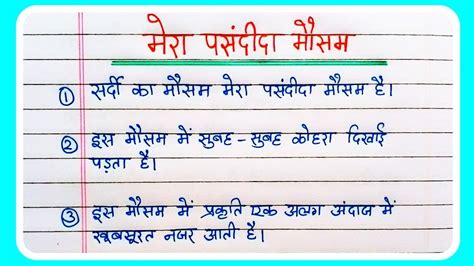 मेरा पसंदीदा मौसम
① सर्दी का मौसम मेरा पसंदीदा मौसम है।
② इस मौसम में सुबह-सुबह कोहरा दिखाई
पड़ता है।
③ इस मौसम में प्रकृति एक अलग अंदाज में
खूबसूरत नजर आती है।